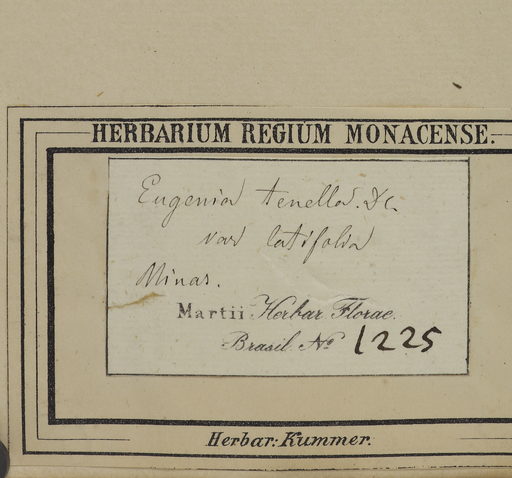 HERBARIUM REGIUM MONACENSE.
Eugenia tenella. Dc.
var latifolia
Minas.
Martii Herbar. Florae.
Brasil. No 1225
Herbar: Kummer.